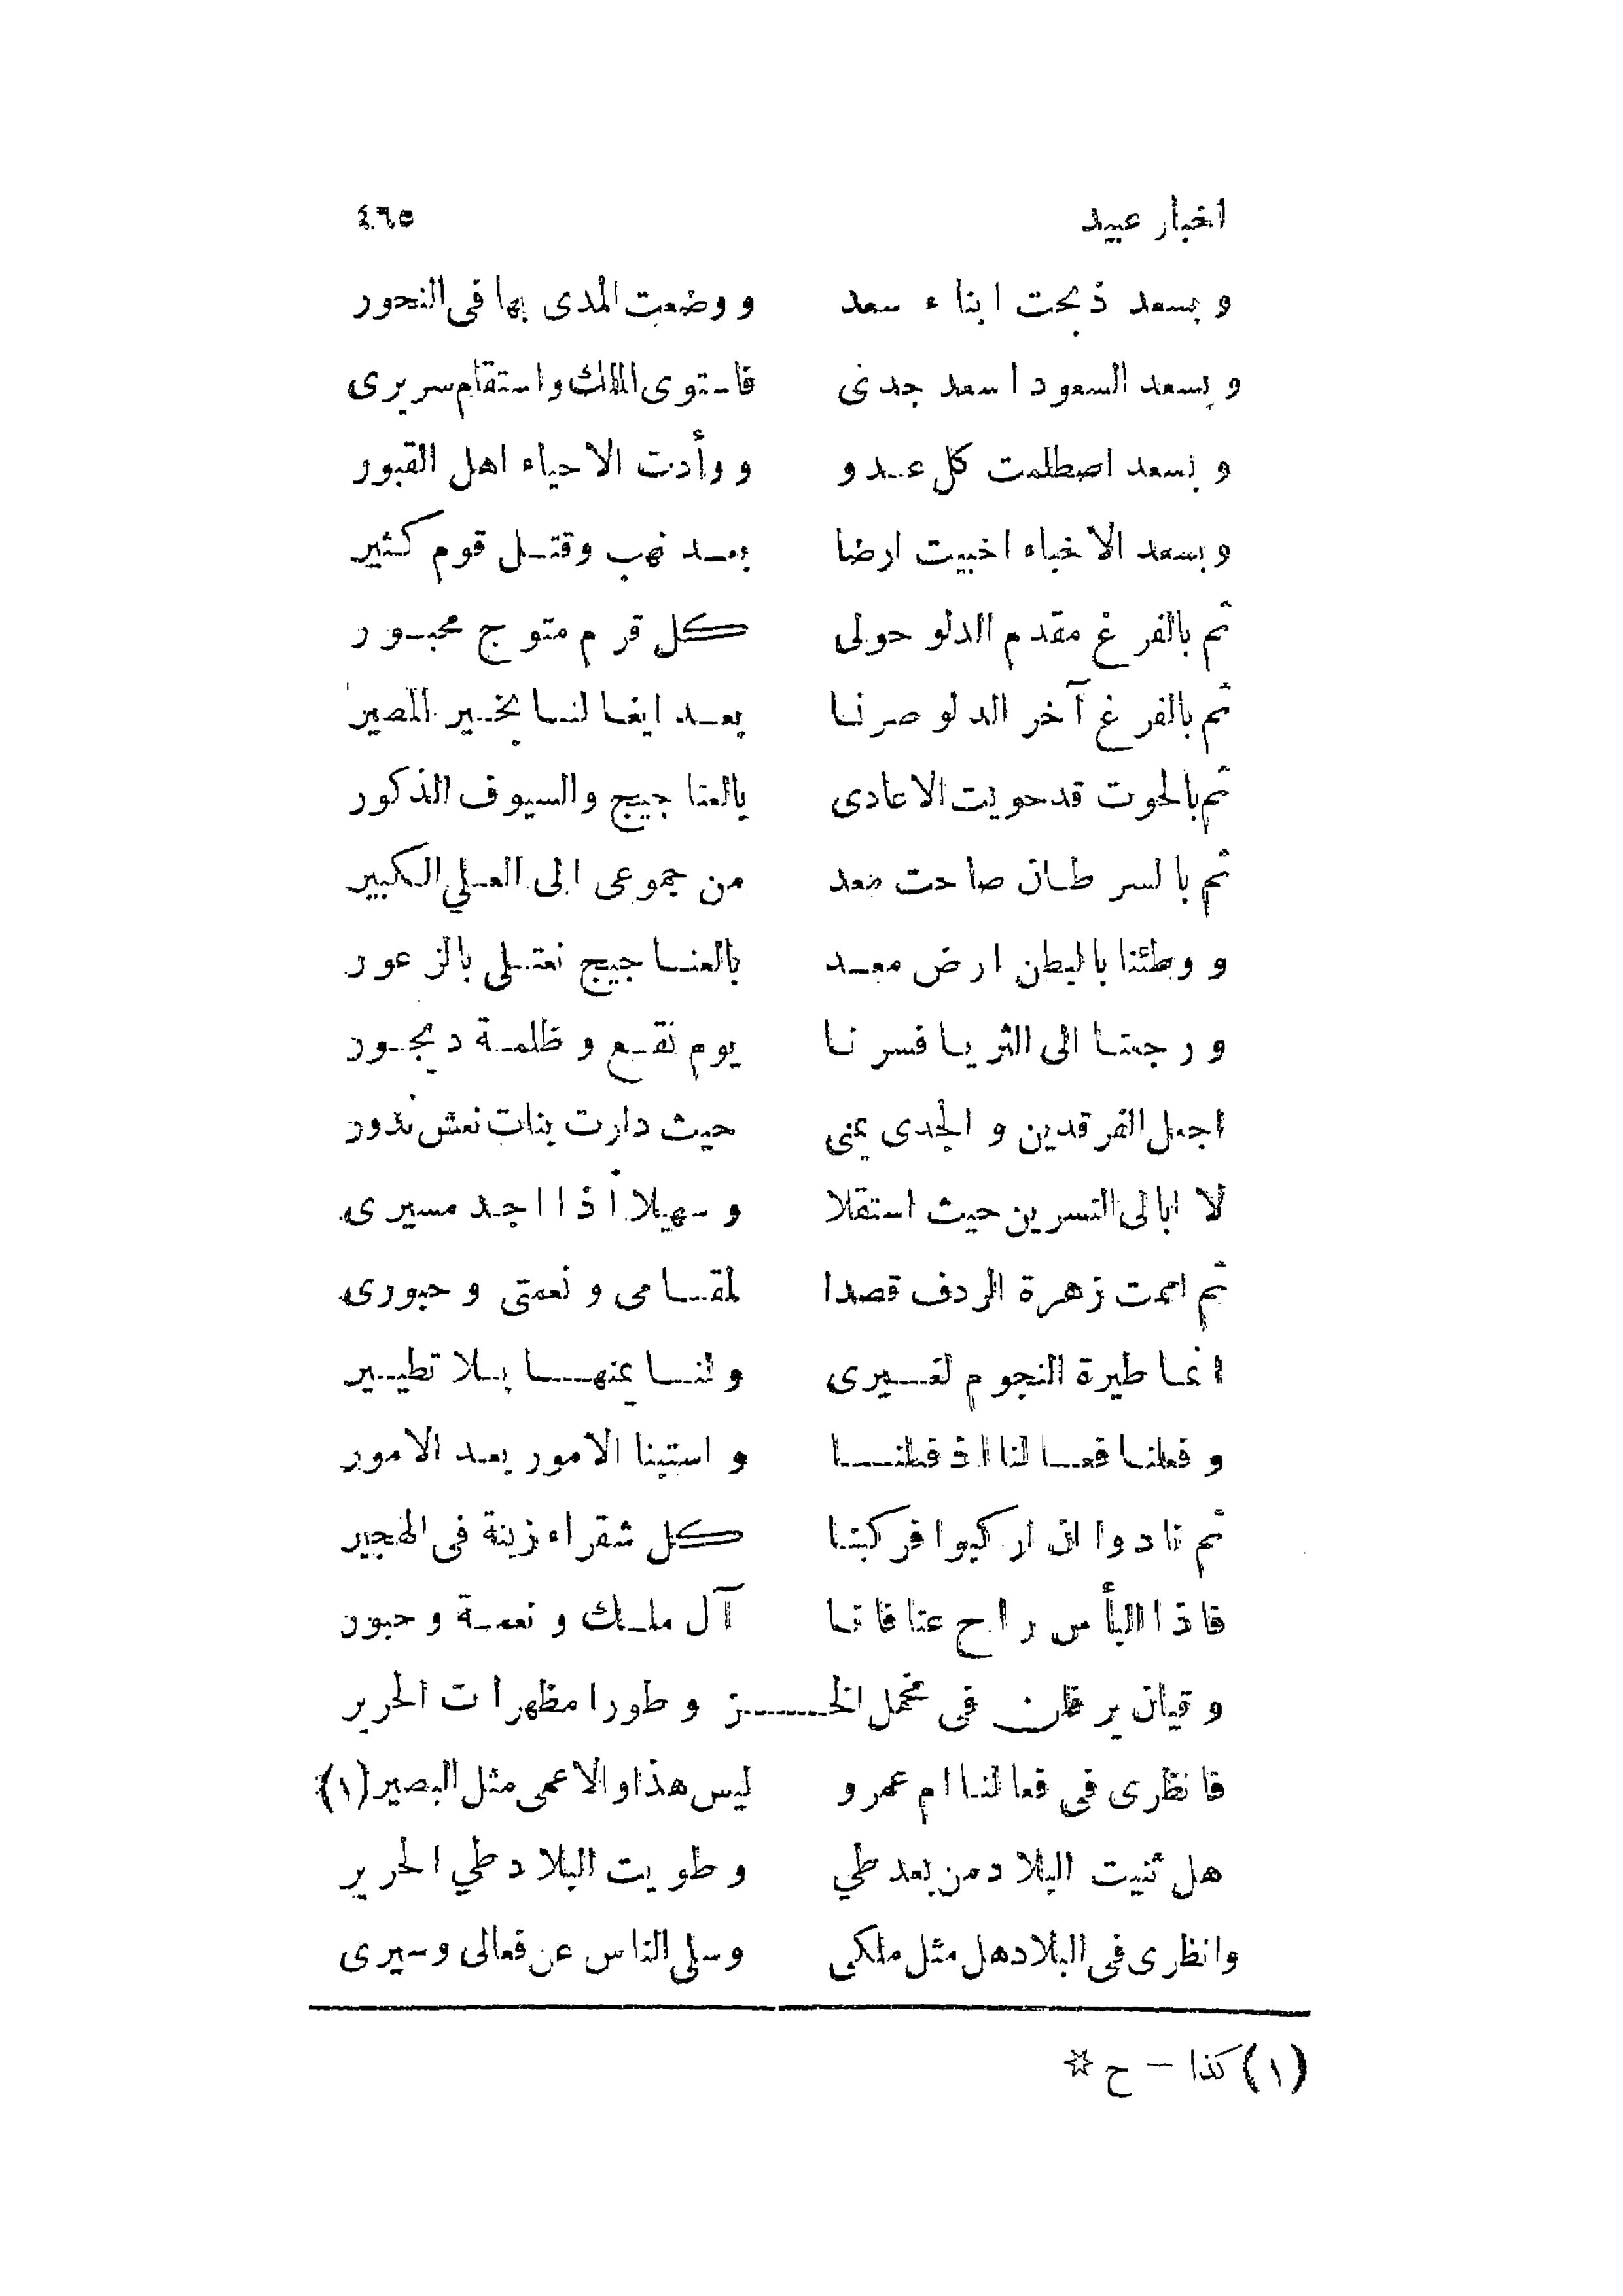 اخبار عبيد ٤٦٥
و بسعد ذبحت ابناء سعد و وضعت المدى بها فى النحور
و بسعد السعود اسعد جدى فاستوى الملك واستقام سريرى
و بسعد اصطلمت كل عدو و وأدت الاحياء اهل القبور
وبسعد الاخباء اخبيت ارضا بعد نهب وقتل قوم كثير
ثم بالفرغ مقدم الدلو حولى كل قرم متوج محبور
ثم بالفرغ آخر الدلو صرنا بعد ايغالنا بخير المصير
ثم بالحوت قد حويت الاعادى بالعناجيج والسيوف الذكور
ثم بالسرطان صاحت معد من جموعى الى العلي الكبير
و وطئنا بالبطن ارض معد بالعناجيج نعتلى بالزعور
و رجعنا الى الثريا فسرنا يوم نقع و ظلمة ديجور
اجعل الفرقدين و الجدى يمنى حيث دارت بنات نعش تدور
لا ابالى النسرين حيث استقلا و سهيلا أذا اجد مسيرى
ثم اممت زهرة الردف قصدا لمقامى و نعمتى و حبورى
انما طيرة النجوم لغيرى و لنا يمنها بلا تطيير
و فعلنا فعالنا اذ فعلنا و استبنا الامور بعد الامور
ثم نادوا ان اركبوا فركبنا كل شقراء زينة فى الهجير
فاذا البأس راح عنا فانا آل ملك و نعمة و حبور
و قيان يرفلن فى مخمل الخز و طورا مظهرات الحرير
فانظرى فى فعالنا ام عمرو ليس هذا والاعمى مثل البصير (١)
هل ثنيت البلاد من بعد طي و طويت البلاد طي الحرير
وانظرى فى البلاد هل مثل ملكى وسلى الناس عن فعالى وسيرى
(١) كذا – ح ☆